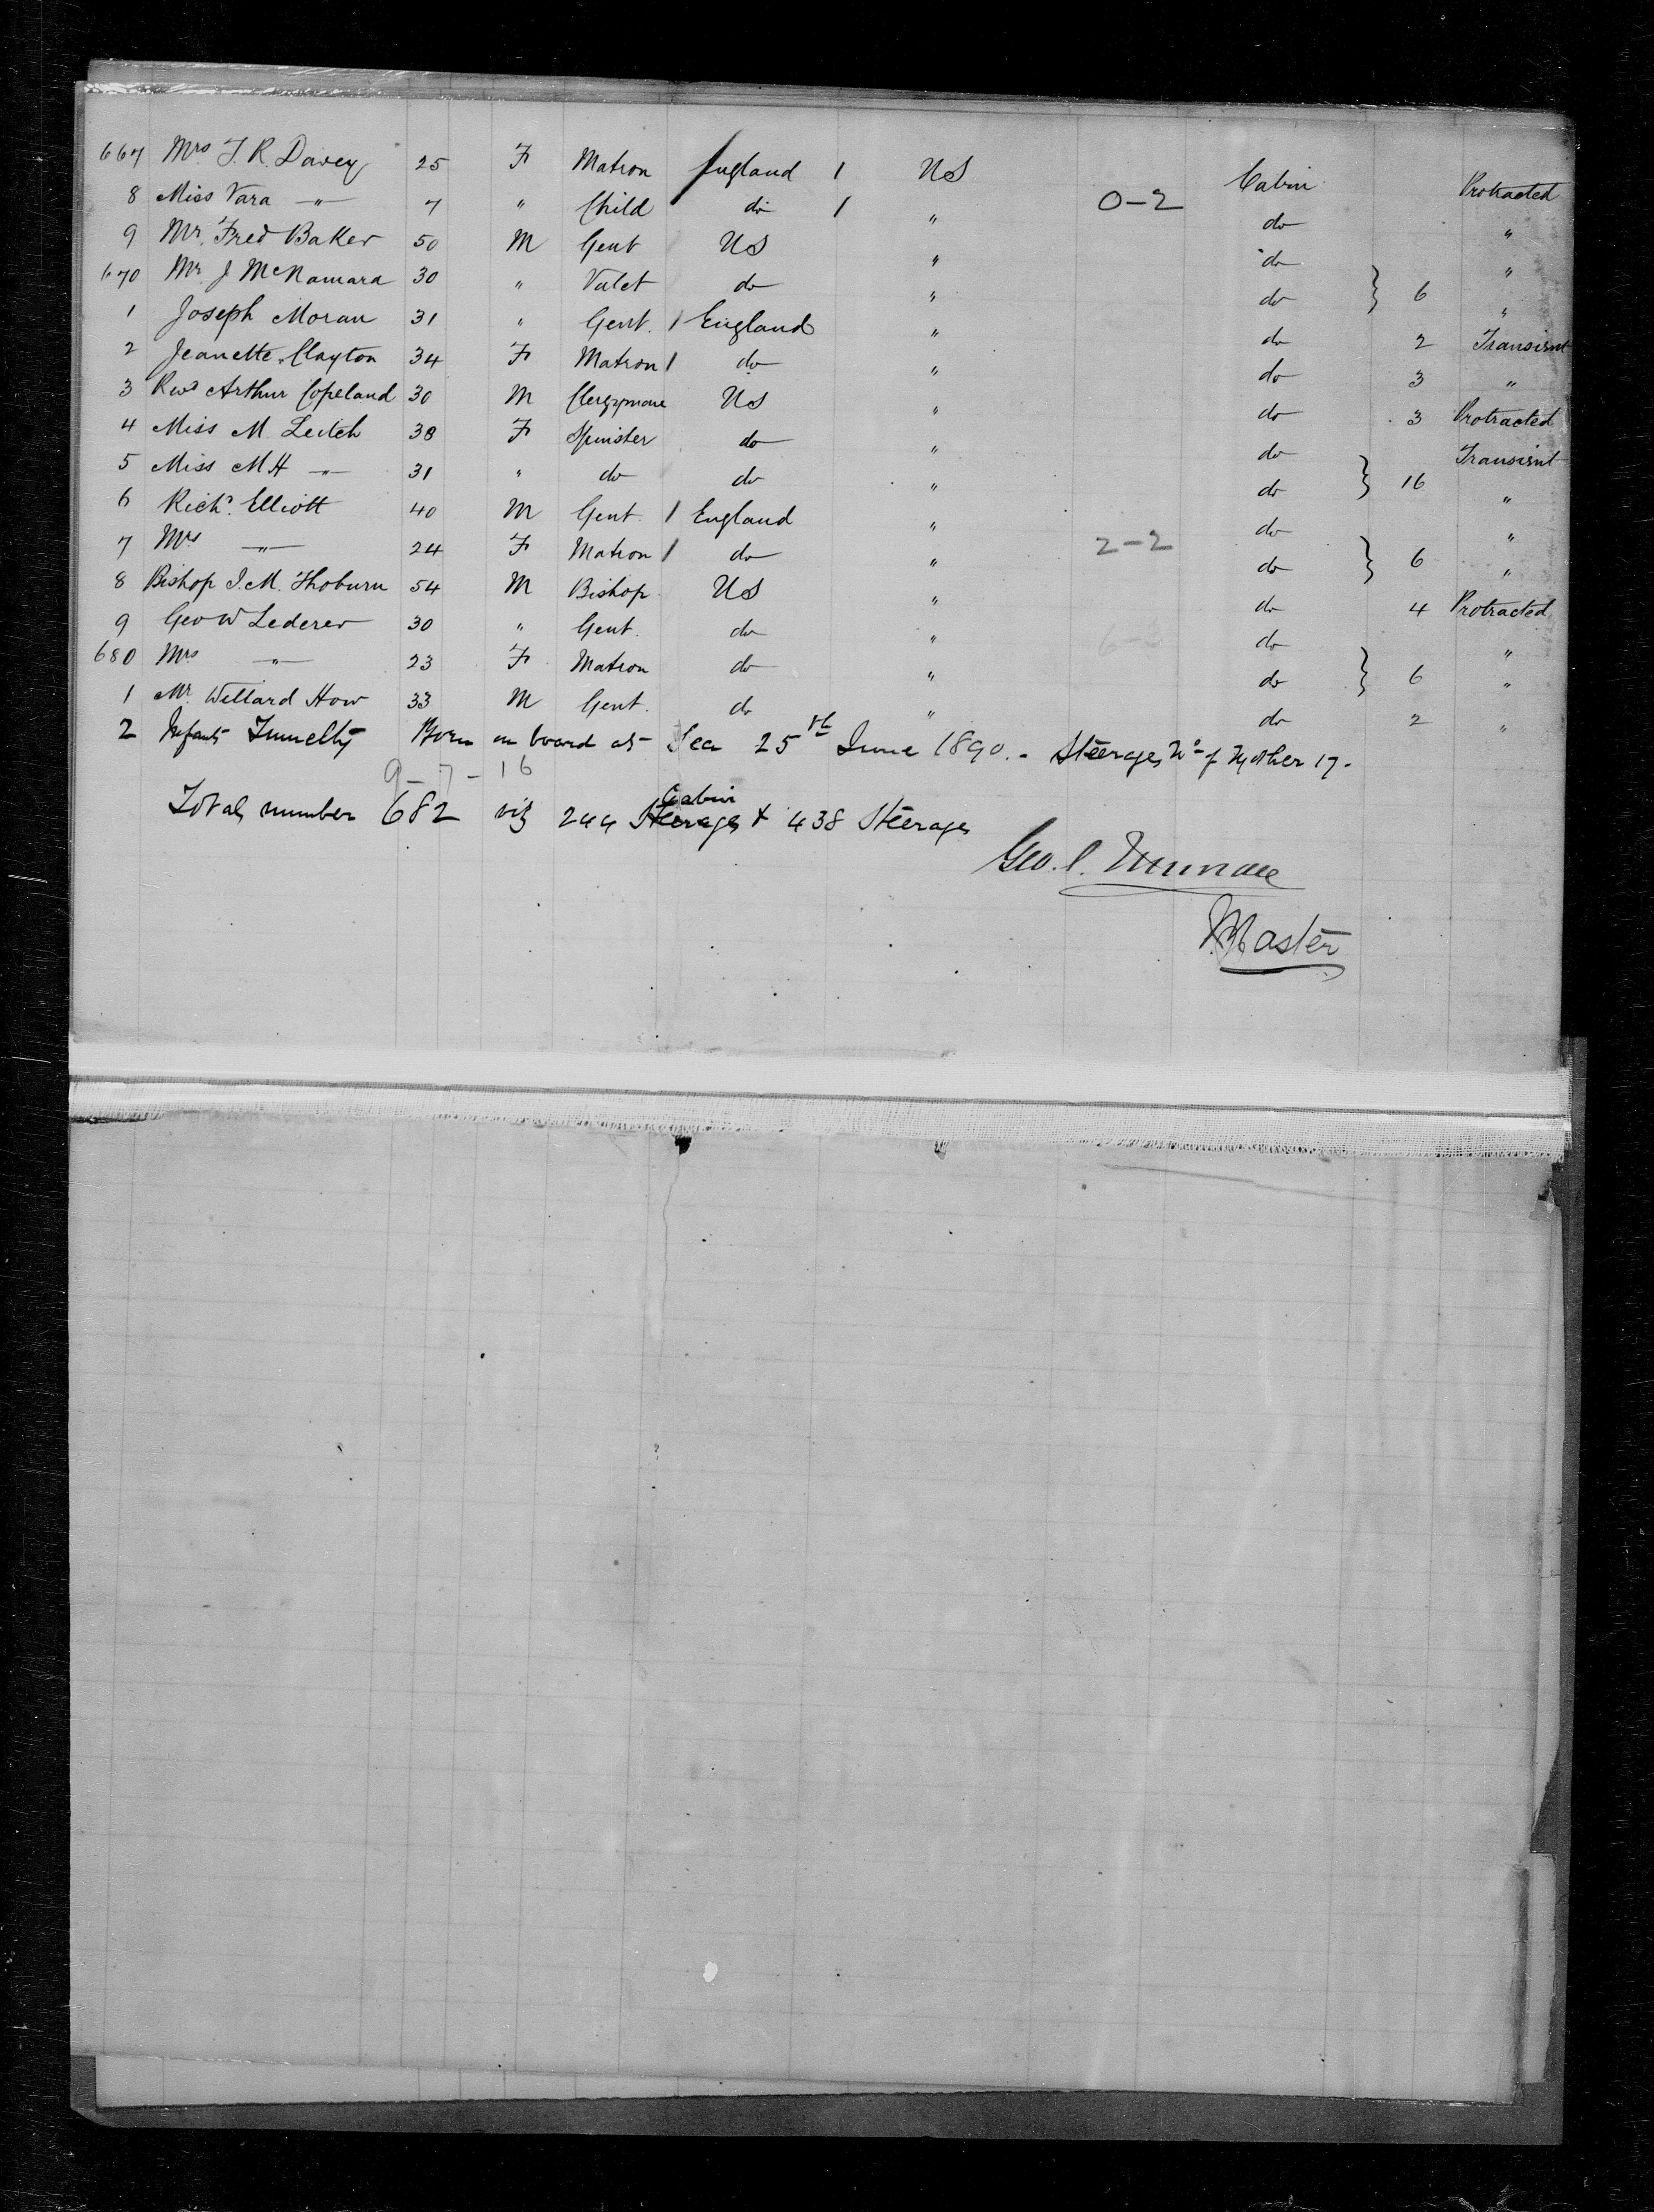 667 Mrs F. R. Davey 25 F Matron England 1 US Cabin Protracted
8 Miss Vara —"— 7 " Child do 1 " 0-2 do "
9 Mr. Fred Baker 50 M Gent US " do "
670 Mr J McNamara 30 " Valet do " do } 6 "
1 Joseph Moran 31 " Gent. 1 England " do 2 Transient
2 Jeanette Clayton 34 F Matron 1 do " do 3 "
3 Revd Arthur Copeland 30 M Clergyman US " do 3 Protracted
4 Miss M. Leitch 38 F Spinster do " do Transient
5 Miss M H —"— 31 " do do " do } 16 "
6 Richd. Elliott 40 M Gent. 1 England " do "
7 Mrs —"— 24 F Matron 1 do " 2-2 do } 6 "
8 Bishop J. M. Thoburn 54 M Bishop US " do 4 Protracted
9 Geo W Lederer 30 " Gent. do " do "
680 Mrs —"— 23 F Matron do " do } 6 "
1 Mr. Willard How 33 M Gent. do " do 2 "
2 Infant Born on board at Sea 25th June 1890. - Steerage No of Mother 17.
9-7-16
Cabin
Total number 682 viz 244 Steerage & 438 Steerage
Geo. C.
Master